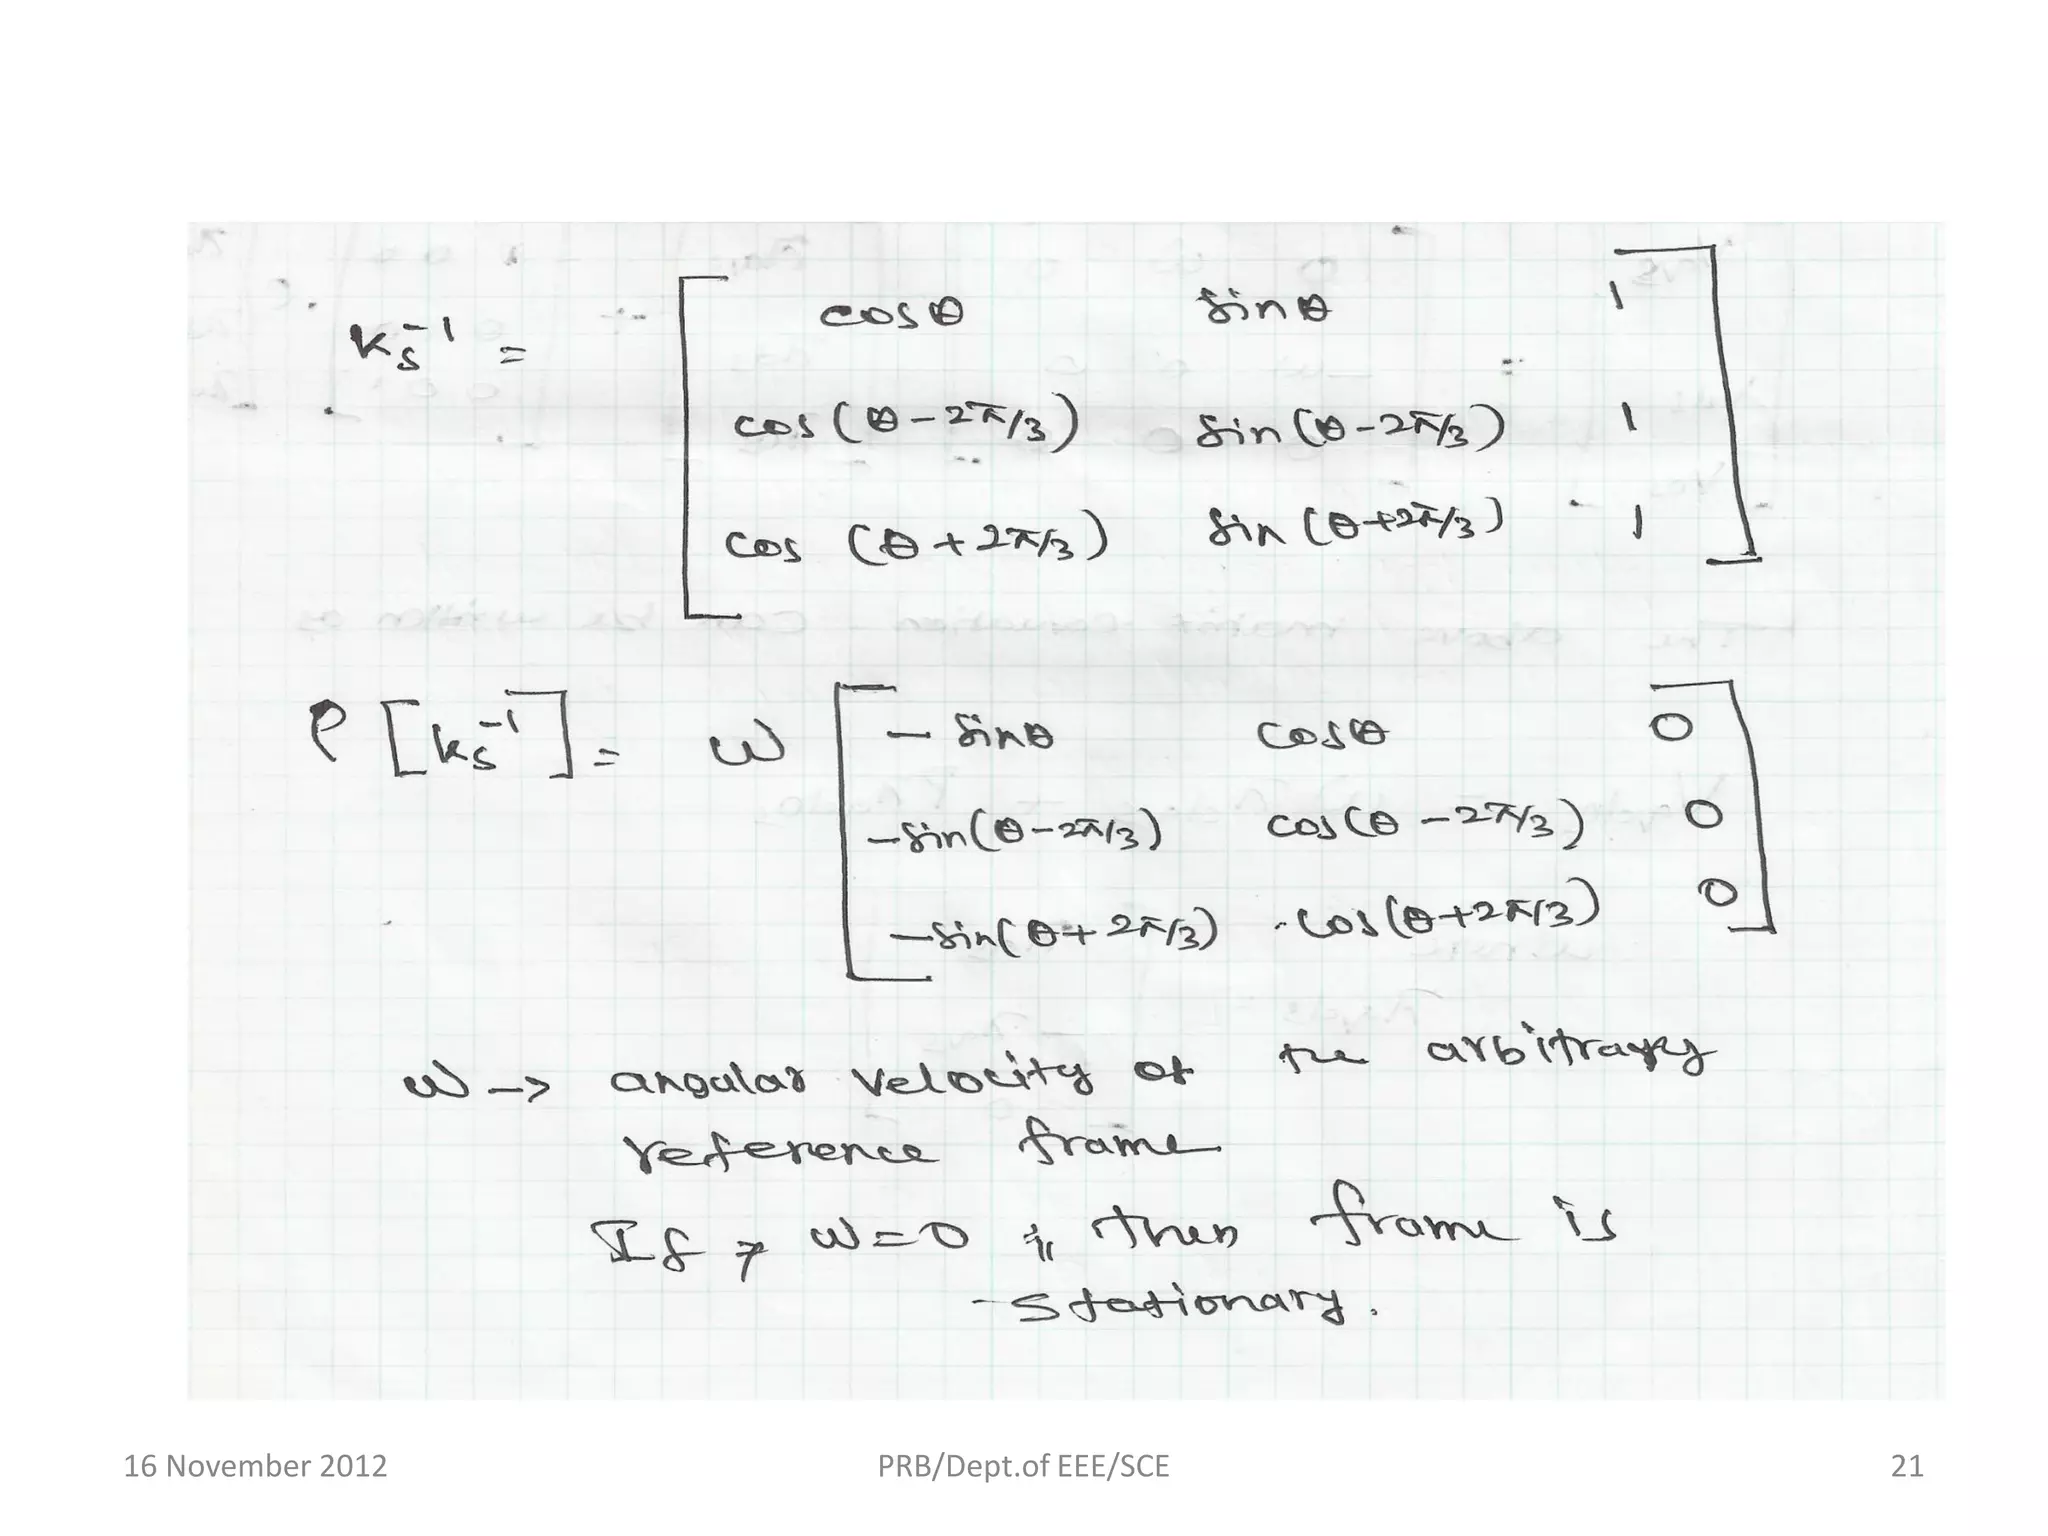 Ks⁻¹ = [ cosθ sinθ 1
cos(θ-2π/3) sin(θ-2π/3) 1
cos (θ+2π/3) sin(θ+2π/3) 1 ]
P [Ks⁻¹] = ω [ -sinθ cosθ 0
-sin(θ-2π/3) cos(θ-2π/3) 0
-sin(θ+2π/3) cos(θ+2π/3) 0 ]
ω -> angular velocity of the arbitrary
reference frame
If, ω=0 ; then frame is
stationary.
16 November 2012 PRB/Dept.of EEE/SCE 21